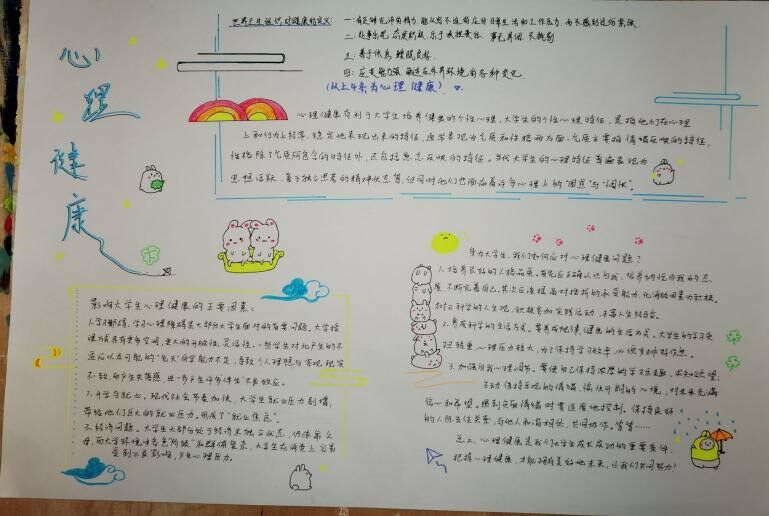 心理健康
世界卫生组织对健康的定义:
一:有足够充沛的精力,能从容不迫的应付日常生活和工作压力,而不感到过分紧张。
二:处事乐观,态度积极,乐于承担责任,事无巨细,不挑剔。
三:善于休息,睡眠良好。
四:应变能力强,能适应外界环境的各种变化。
(从上4条为心理健康)。
心理健康有利于大学生培养健康的个性心理,大学生的个性心理特征,是指他们在心理
上和行为上经常、稳定地表现出来的特征,通常表现为气质和性格两方面。气质主要指情绪反映的特征,
性格除了气质所包含的特征外,还包括意志反映的特征。当代大学生的心理特征普遍表现为
思想活跃、善于独立思考的精神状态等,但同时他们也面临着许多心理上的"困惑"与"困扰"。
影响大学生心理健康的主要因素:
1.学习
学习
大部分大学生面对的首要问题,大学授
课方式具有更多空间、更大的开放性、灵活性。一些学生对此产生的不
适应以及可能的"先天"自学能力不足,导致个人理想与客观现实
不一致而产生失落感,进一步产生许多学生不良效应。
2.升学与就业:现代社会节奏加快,大学生就业压力剧增,
带给他们巨大的就业压力,形成了"就业焦虑"。
3.经济问题。大学生大部分处于经济未独立状态,仍依靠父
母,而大学环境
大学生在消费上容易
受到不良影响,产生心理压力。
身为大学生,我们如何应对心理健康问题?
1.培养良好的人格品质。首先应正确认识自我,培养
自我的态
度,不断完善自己。其次应该提高对挫折的承受能力,化消极因素为积极。
树立科学的人生观,积极参加实践活动,丰富人生经验。
2.养成科学的生活方式。要养成规律、健康的生活方式。大学生的学习负
担较重,心理压力较大,为了保持学习效率,必须支
3.加强自我心理调节。要使自己保持浓厚的学习兴趣,求知欲望;
主动保持乐观的情绪,愉快开朗的心境,对未来充满
信心和希望。遇到负面情绪时要适度地控制。保持良好
的人际交往关系,与他人和谐相处,共同协作。等等……
总之,心理健康是我们大学生成长成功的重要条件,
把握心理健康,才能拥有美好地未来,让我们共同努力!